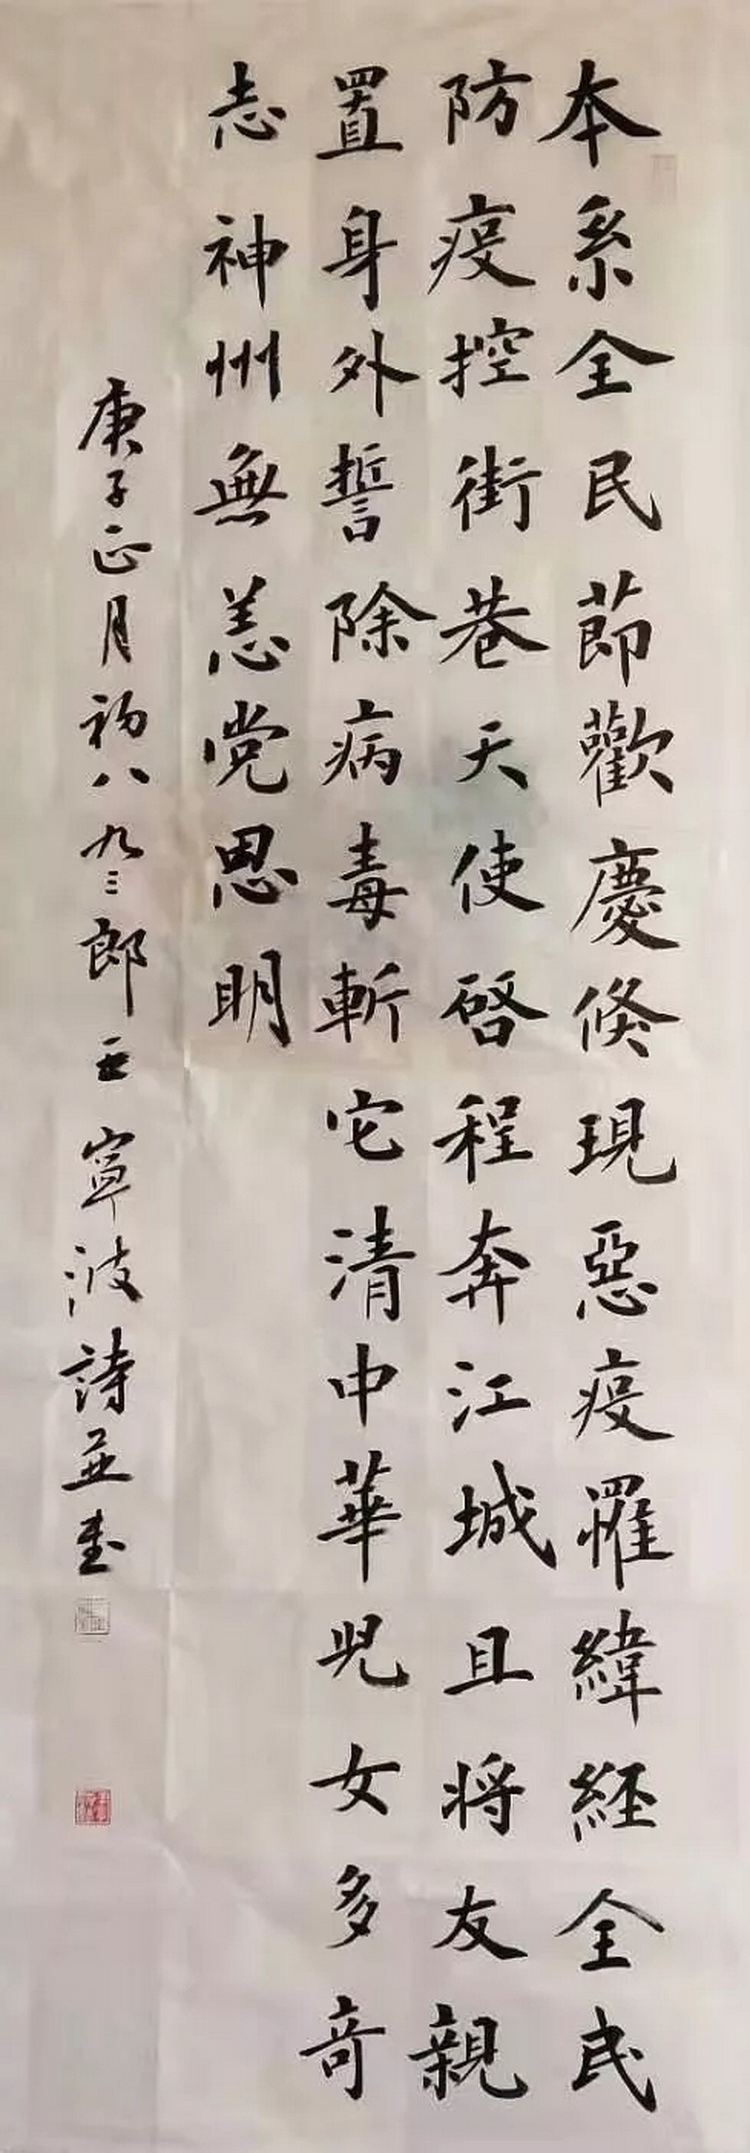 本系全民節歡慶倏現惡疫罹緯經全民
防疫控街巷天使啓程奔江城且将友親
置身外誓除病毒斬它清中華児女多奇
志神州無恙党恩明
庚子正月初八九三郎王寧波詩並書